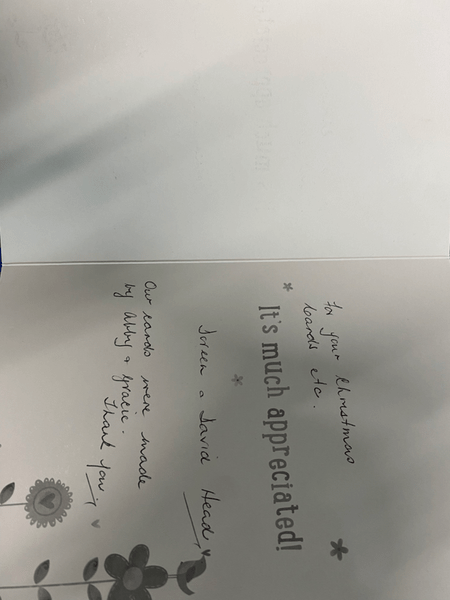 for your Christmas
Cards etc.
It's much appreciated!
Doreen & David Head
Our cards were made
by Abby & Gracie.
Thank you